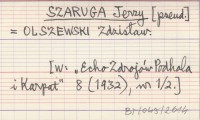 SZARUGA Jerzy [pseud.]
= OLSZEWSKI Zdzisław.
[W: „Echo Zdrojów Podhala
i Karpat" 8 (1932), nr 1/2.]
BJ/045/2014